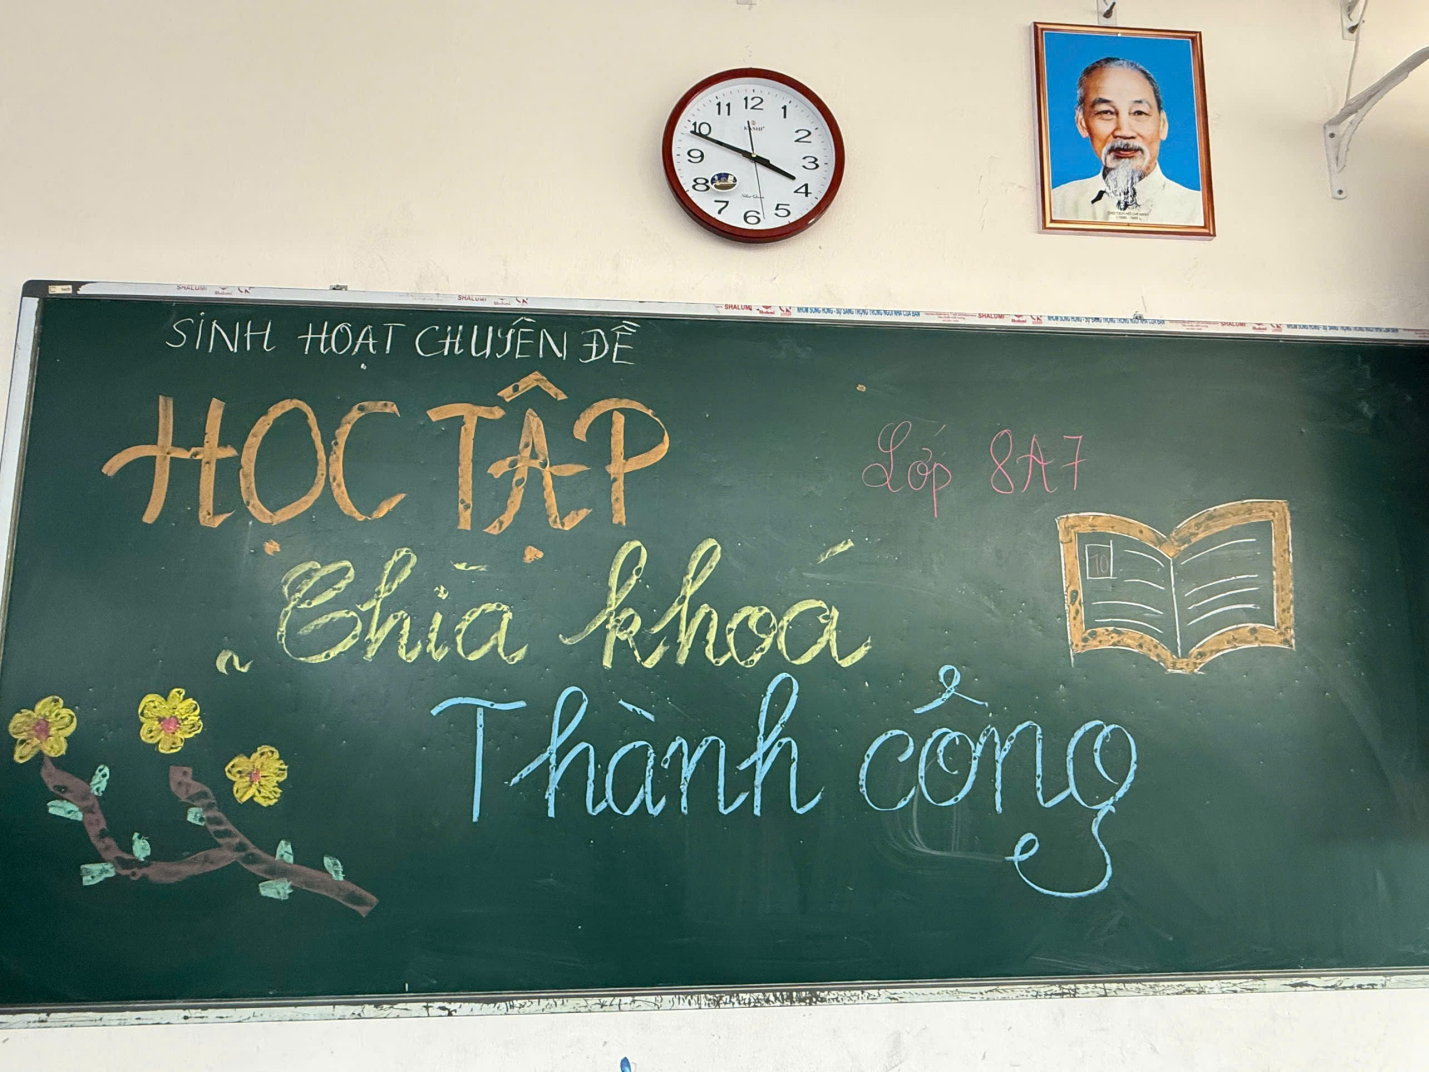 12
1
2
3
4
5
6
7
8
9
10
11
SINH HOẠT CHUYÊN ĐỀ
HỌC TẬP
Lớp 8A7
Chìa khoá
Thành công
SHALUMI
SHALUMI
SHALUMI
SHALUMI
SHALUMI